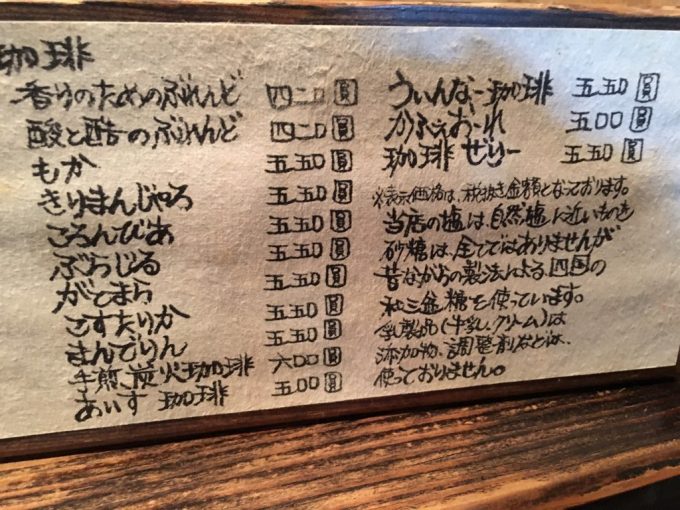 珈琲
香りのためのぶれんど 四二〇圓
酸と酷のぶれんど 四二〇圓
もか 五五〇圓
きりまんじゃろ 五五〇圓
ころんびあ 五五〇圓
ぶらじる 五五〇圓
がてまら 五五〇圓
こすたりか 五五〇圓
まんでりん 五五〇圓
手煎、炭火珈琲 六〇〇圓
あいす珈琲 五〇〇圓
うぃんなー珈琲 五五〇圓
かふぇおーれ 五〇〇圓
珈琲ぜりー 五五〇圓
※表示価格は、税抜き金額となっております。
当店の塩は、自然塩に近いものを
砂糖は、全てではありませんが
昔ながらの製法による四国の
和三盆糖を使っています。
乳製品(牛乳、クリーム)は
添加物、調整剤などは、
使っておりません。